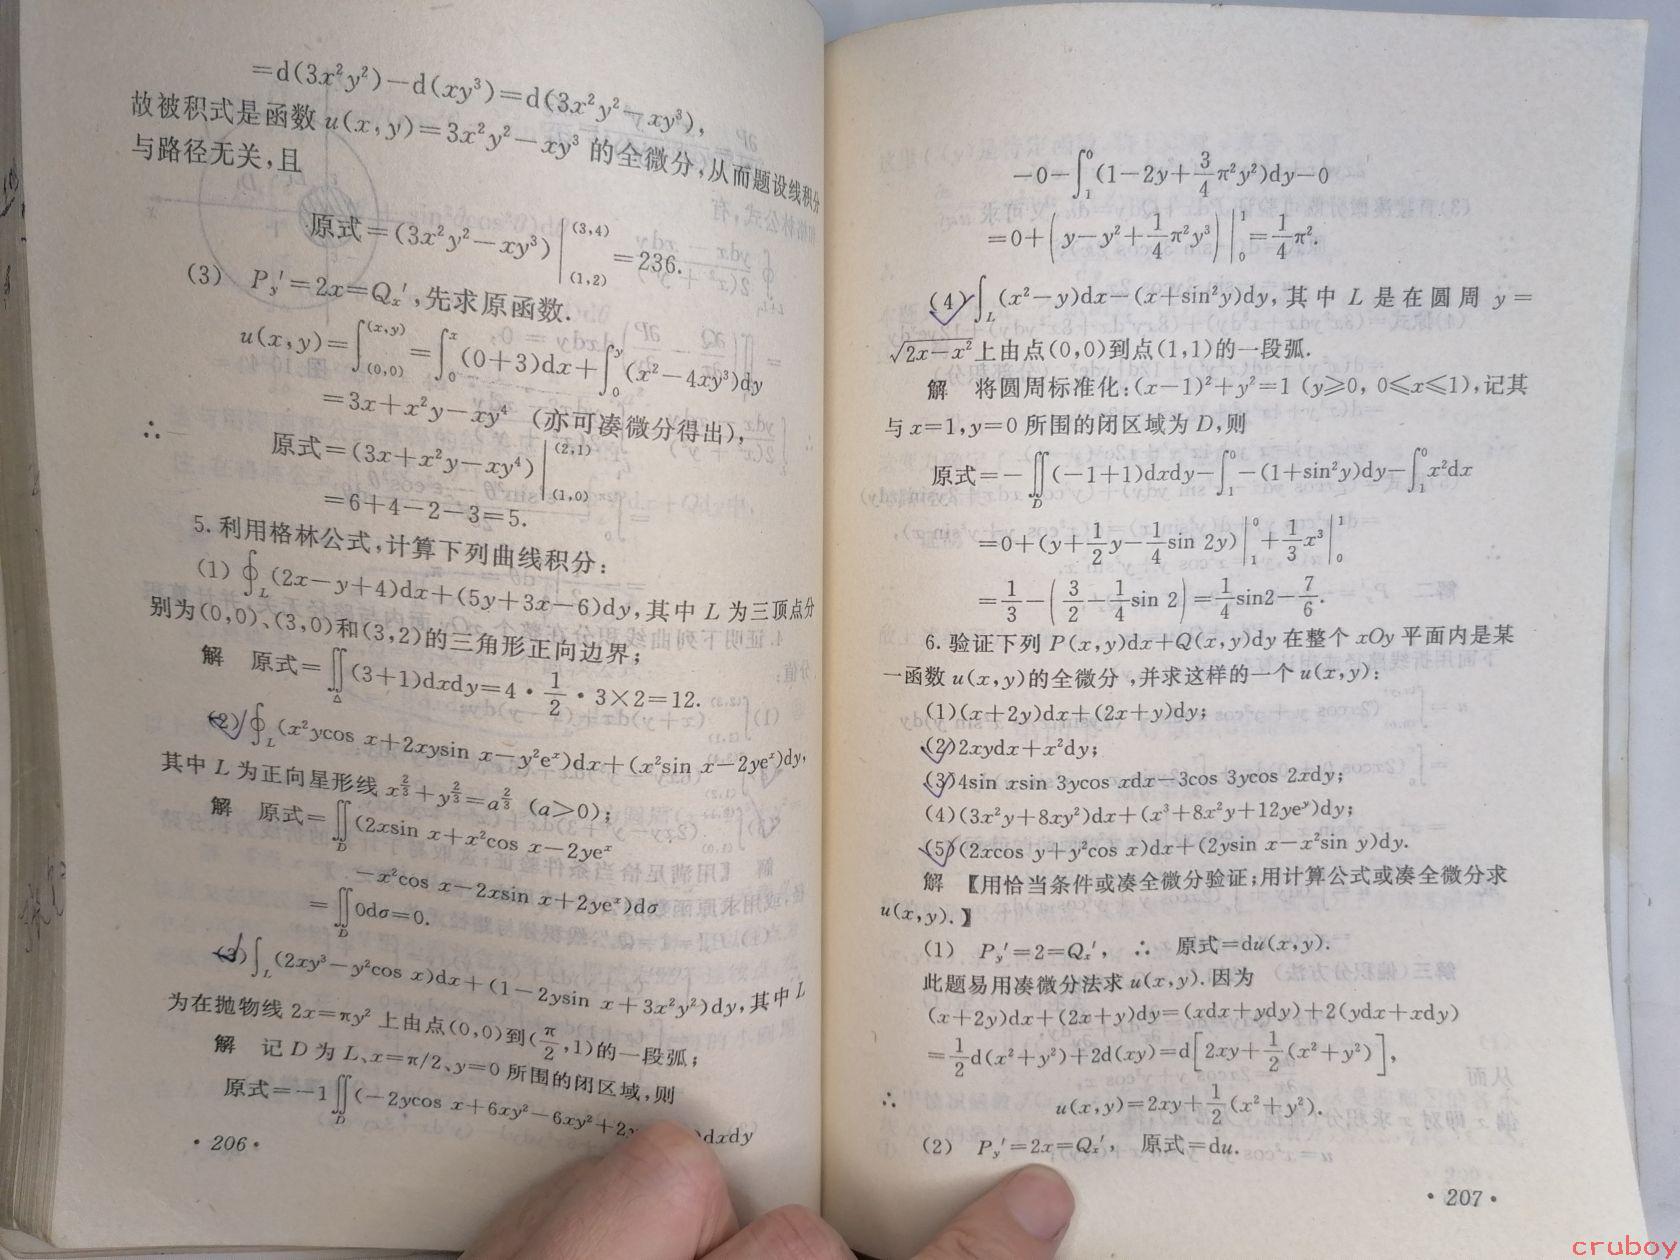 =d(3x²y²)-d(xy³)=d(3x²y²-xy³),
故被积式是函数 u(x,y)=3x²y²-xy³ 的全微分,从而题设线积分
与路径无关,且
原式=(3x²y²-xy³)|₍₁,₂₎⁽³,⁴⁾=236.
(3) P_y′=2x=Q_x′,先求原函数.
u(x,y)=∫₍₀,₀₎^(x,y)=∫₀ˣ(0+3)dx+∫₀^y(x²-4xy³)dy
=3x+x²y-xy⁴ (亦可凑微分得出),
∴ 原式=(3x+x²y-xy⁴)|₍₁,₀₎⁽²,¹⁾
=6+4-2-3=5.
5.利用格林公式,计算下列曲线积分:
(1) ∮_L(2x-y+4)dx+(5y+3x-6)dy,其中 L 为三顶点分
别为(0,0)、(3,0)和(3,2)的三角形正向边界;
解 原式=∬_Δ(3+1)dxdy=4·1/2·3×2=12.
(2) ∮_L(x²ycos x+2xysin x-y²eˣ)dx+(x²sin x-2yeˣ)dy,
其中 L 为正向星形线 x^(2/3)+y^(2/3)=a^(2/3) (a>0);
解 原式=∬_D(2xsin x+x²cos x-2yeˣ
-x²cos x-2xsin x+2yeˣ)dσ
=∬_D 0dσ=0.
(3) ∫_L(2xy³-y²cos x)dx+(1-2ysin x+3x²y²)dy,其中 L
为在抛物线 2x=πy² 上由点(0,0)到(π/2,1)的一段弧;
解 记 D 为 L、x=π/2、y=0 所围的闭区域,则
原式=-1∬_D(-2ycos x+6xy²-6xy²+2y )dxdy
·206·
-0-∫₁⁰(1-2y+3/4π²y²)dy-0
=0+(y-y²+1/4π²y³)|₀¹=1/4π².
(4) ∫_L(x²-y)dx-(x+sin²y)dy,其中 L 是在圆周 y=
√(2x-x²)上由点(0,0)到点(1,1)的一段弧.
解 将圆周标准化:(x-1)²+y²=1 (y≥0, 0≤x≤1),记其
与 x=1,y=0 所围的闭区域为 D,则
原式=-∬_D(-1+1)dxdy-∫₁⁰-(1+sin²y)dy-∫₁⁰x²dx
=0+(y+1/2y-1/4sin 2y)|₁⁰+1/3x³|₀¹
=1/3-(3/2-1/4sin 2)=1/4sin2-7/6.
6.验证下列 P(x,y)dx+Q(x,y)dy 在整个 xOy 平面内是某
一函数 u(x,y)的全微分,并求这样的一个 u(x,y):
(1)(x+2y)dx+(2x+y)dy;
(2)2xydx+x²dy;
(3)4sin xsin 3ycos xdx-3cos 3ycos 2xdy;
(4)(3x²y+8xy²)dx+(x³+8x²y+12ye^y)dy;
(5)(2xcos y+y²cos x)dx+(2ysin x-x²sin y)dy.
解 【用恰当条件或凑全微分验证;用计算公式或凑全微分求
u(x,y).】
(1) P_y′=2=Q_x′, ∴ 原式=du(x,y).
此题易用凑微分法求 u(x,y).因为
(x+2y)dx+(2x+y)dy=(xdx+ydy)+2(ydx+xdy)
=1/2d(x²+y²)+2d(xy)=d[2xy+1/2(x²+y²)],
从而
∴ u(x,y)=2xy+1/2(x²+y²).
(2) P_y′=2x=Q_x′, 原式=du.
·207·
cruboy